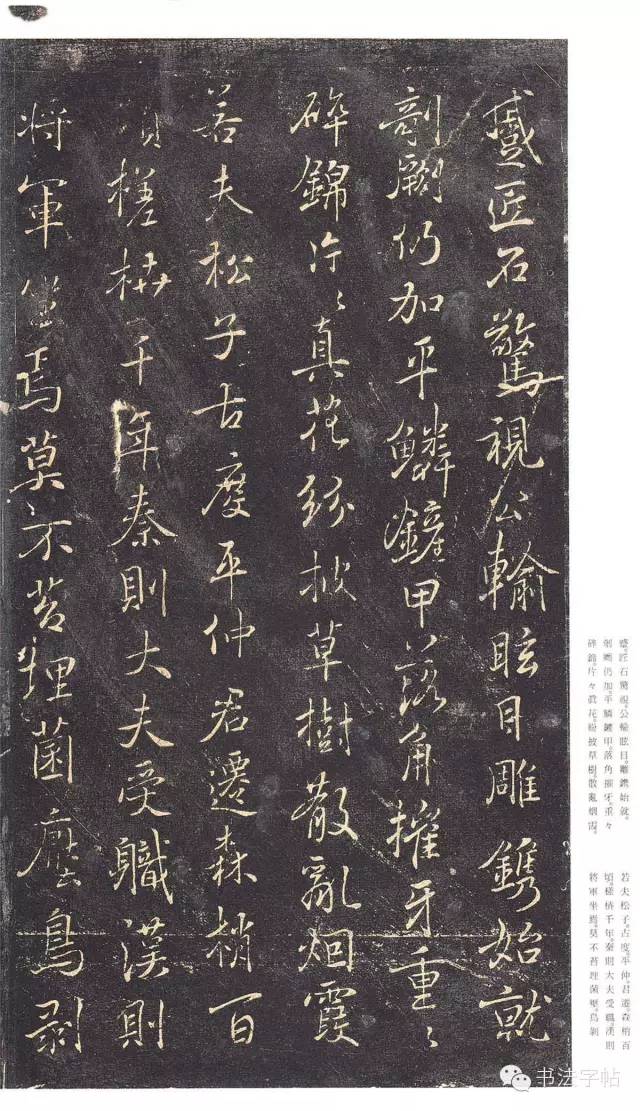 蹙匠石驚視公輸眩目雕鐫始就
剞劂仍加平鱗鏟甲落角摧牙重〻
碎錦片〻真花紛披草樹散亂烟霞
若夫松子古度平仲君遷森梢百
頃槎枿千年秦則大夫受職漢則
將軍坐焉莫不苔埋菌壓鳥剥
蹙匠石驚視公輸眩目雕鐫始就
剞劂仍加平鱗鏟甲落角摧牙重々
碎錦片々眞花紛披草樹散亂烟霞
若夫松子古度平仲君遷森梢百
頃槎枿千年秦則大夫受職漢則
將軍坐焉莫不苔埋菌壓鳥剝
书法字帖